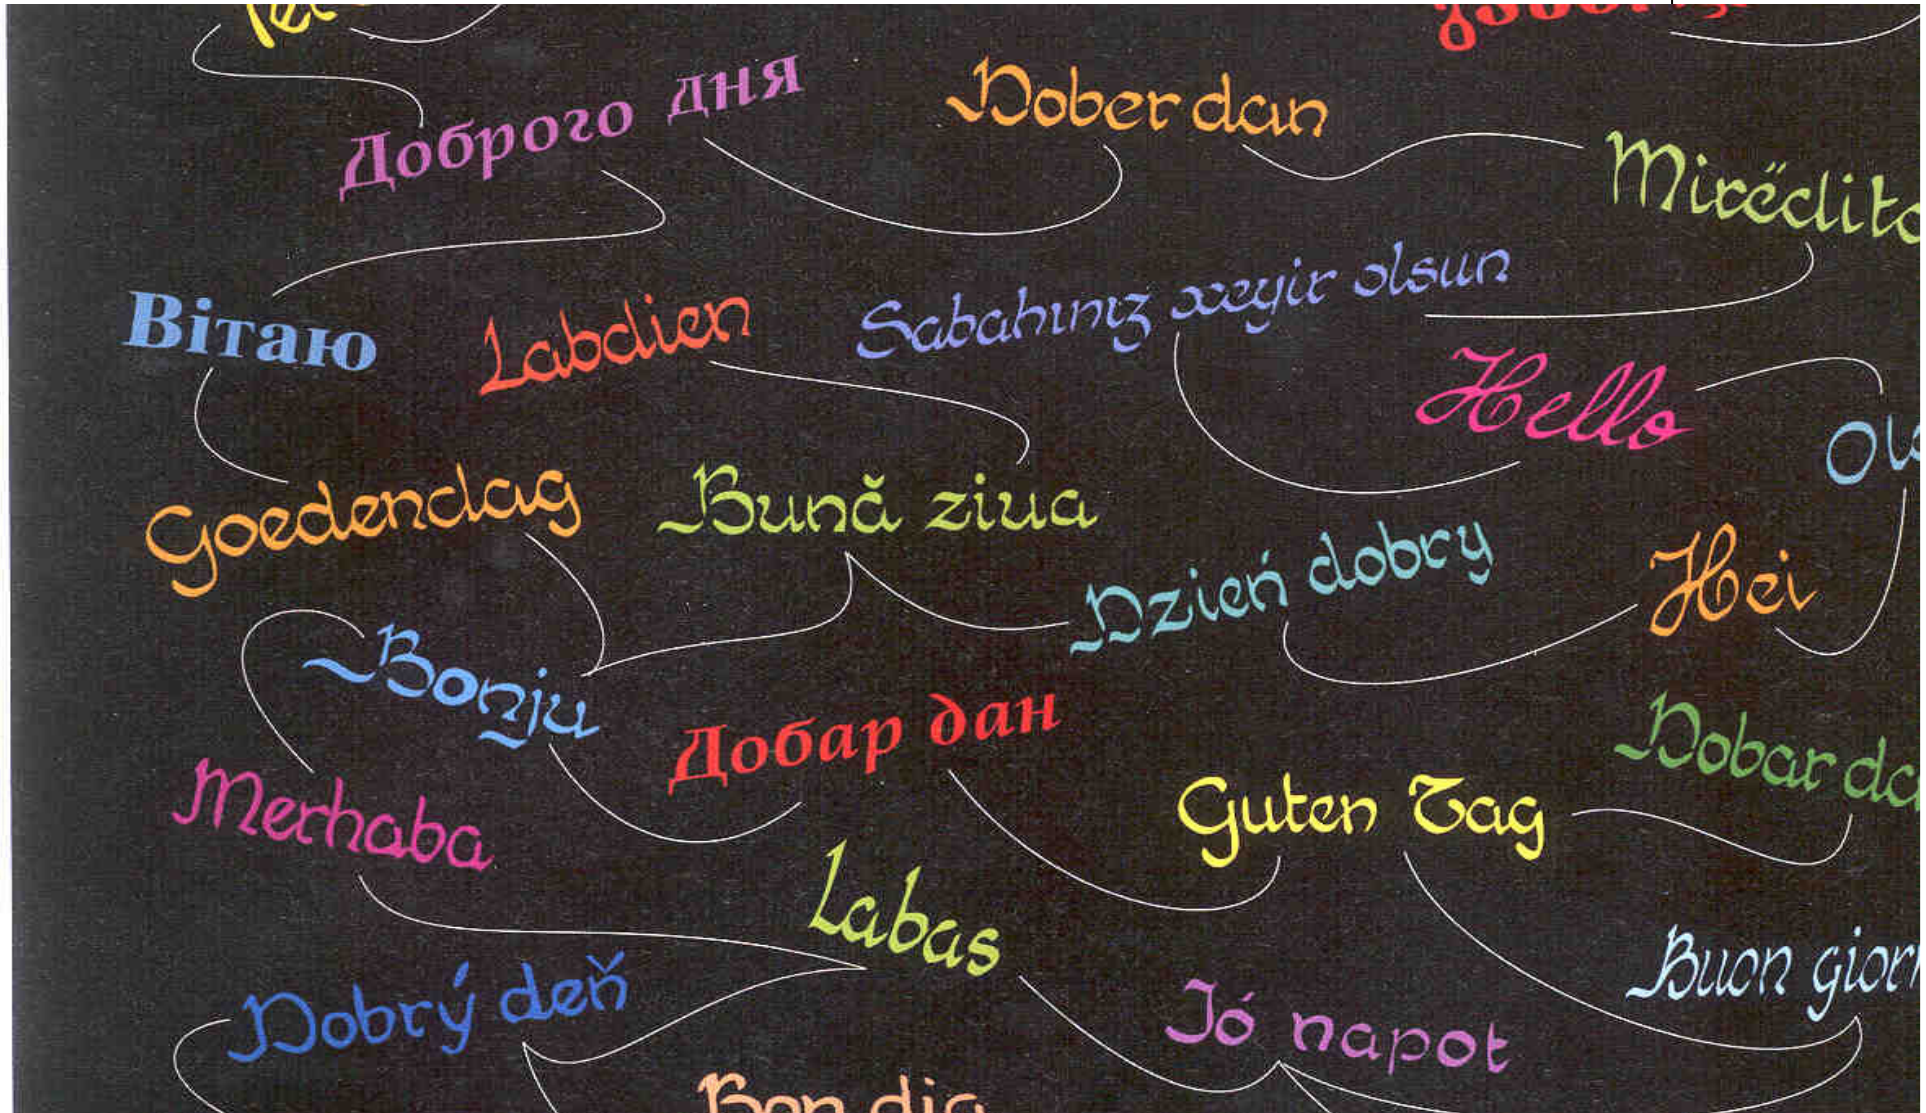 Доброго дня
Dober dan
Mirëdita
Вітаю
Labdien
Sabahınız xeyir olsun
Hello
Goedendag
Bună ziua
Dzień dobry
Hei
Bonju
Добар дан
Dobar da
Merhaba
Guten Tag
Labas
Buon giorn
Dobrý deň
Jó napot
Bon dia